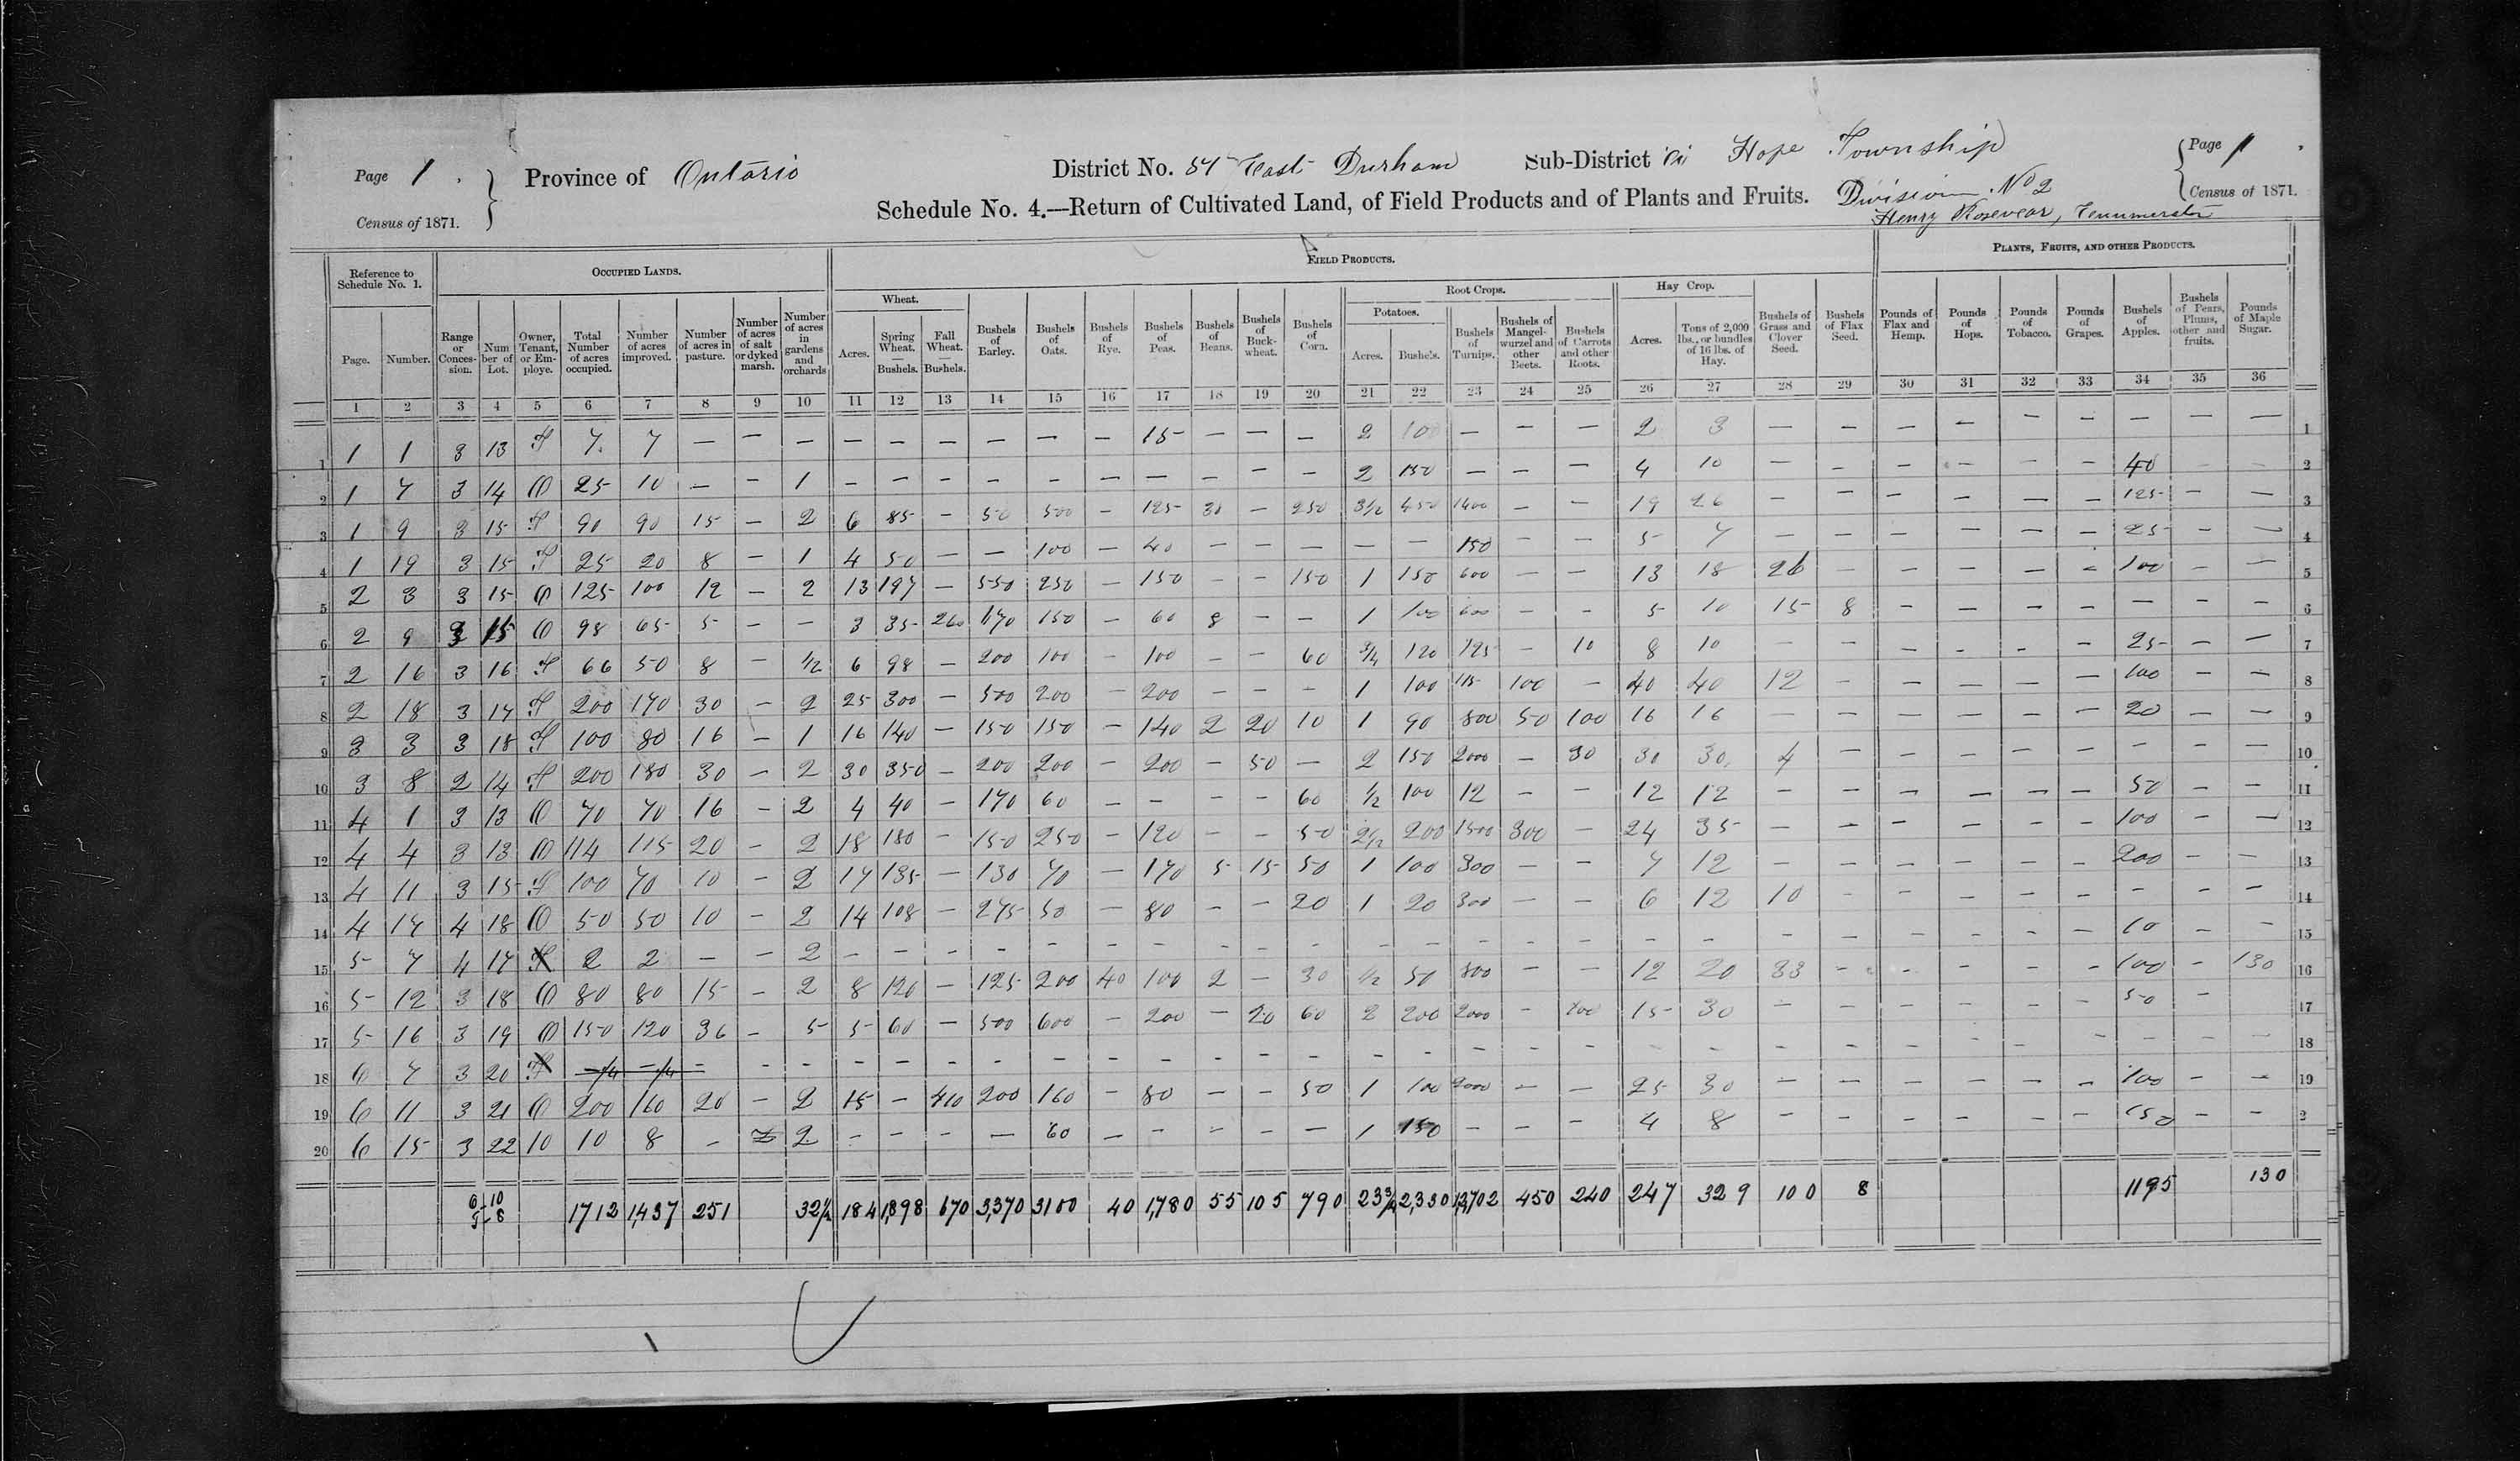 Page 1. Province of Ontario District No. 57 East Durham Sub-District a Hope Township Page 1.
Census of 1871. Schedule No. 4.—Return of Cultivated Land, of Field Products and of Plants and Fruits. Division No 2 Census of 1871.
Henry Rosevear, Enumerator
Reference to Schedule No. 1. OCCUPIED LANDS. FIELD PRODUCTS. PLANTS, FRUITS, AND OTHER PRODUCTS.
Wheat. Root Crops. Hay Crop.
Potatoes.
Page. Number. Range or Conces-sion. Num ber of Lot. Owner, Tenant, or Em-ploye. Total Number of acres occupied. Number of acres improved. Number of acres in pasture. Number of acres of salt or dyked marsh. Number of acres in gardens and orchards Acres. Spring Wheat. — Bushels. Fall Wheat. — Bushels. Bushels of Barley. Bushels of Oats. Bushels of Rye. Bushels of Peas. Bushels of Beans. Bushels of Buck-wheat. Bushels of Corn. Acres. Bushels. Bushels of Turnips. Bushels of Mangel-wurzel and other Beets. Bushels of Carrots and other Roots. Acres. Tons of 2,000 lbs., or bundles of 16 lbs. of Hay. Bushels of Grass and Clover Seed. Bushels of Flax Seed. Pounds of Flax and Hemp. Pounds of Hops. Pounds of Tobacco. Pounds of Grapes. Bushels of Apples. Bushels of Pears, Plums, other and fruits. Pounds of Maple Sugar.
1 2 3 4 5 6 7 8 9 10 11 12 13 14 15 16 17 18 19 20 21 22 23 24 25 26 27 28 29 30 31 32 33 34 35 36
1 1 1 3 13 T 7 7 — — — — — — — — — 15 — — — 2 100 — — — 2 3 — — — — — — — — — 1
2 1 7 3 14 O 25 10 — — 1 — — — — — — — — — — 2 150 — — — 4 10 — — — — — — 40 — — 2
3 1 9 3 15 T 90 90 15 — 2 6 85 — 50 500 — 125 30 — 250 3½ 450 1400 — — 19 26 — — — — — — 125 — — 3
4 1 19 3 15 T 25 20 8 — 1 4 50 — — 100 — 40 — — — — — 150 — — 5 7 — — — — — — 25 — — 4
5 2 3 3 15 O 125 100 12 — 2 13 197 — 550 250 — 150 — — 150 1 150 600 — — 13 18 26 — — — — — 100 — — 5
6 2 9 3 15 O 98 65 5 — — 3 35 260 170 150 — 60 8 — — 1 100 600 — — 5 10 15 8 — — — — — — — 6
7 2 16 3 16 T 66 50 8 — ½ 6 98 — 200 100 — 100 — — 60 ¾ 120 125 — 10 8 10 — — — — — — 25 — — 7
8 2 18 3 17 T 200 170 30 — 2 25 300 — 500 200 — 200 — — — 1 100 115 100 — 40 40 12 — — — — — 100 — — 8
9 3 3 3 18 T 100 80 16 — 1 16 140 — 150 150 — 140 2 20 10 1 90 800 50 100 16 16 — — — — — — 20 — — 9
10 3 8 2 14 T 200 180 30 — 2 30 350 — 200 200 — 200 — 50 — 2 150 2000 — 30 30 30 4 — — — — — — — — 10
11 4 1 3 13 O 70 70 16 — 2 4 40 — 170 60 — — — — 60 ½ 100 12 — — 12 12 — — — — — — 50 — — 11
12 4 4 3 13 O 114 115 20 — 2 18 180 — 150 250 — 120 — — 50 2½ 200 1500 300 — 24 35 — — — — — — 100 — — 12
13 4 11 3 15 T 100 70 10 — 2 17 135 — 130 70 — 170 5 15 50 1 100 300 — — 7 12 — — — — — — 200 — — 13
14 4 17 4 18 O 50 50 10 — 2 14 108 — 275 50 — 80 — — 20 1 20 300 — — 6 12 10 — — — — — — — — 14
15 5 7 4 17 T 2 2 — — 2 — — — — — — — — — — — — — — — — — — — — — — — 10 — — 15
16 5 12 3 18 O 80 80 15 — 2 8 120 — 125 200 40 100 2 — 30 ½ 50 800 — — 12 20 33 — — — — — 100 — 130 16
17 5 16 3 19 O 150 120 36 — 5 5 60 — 500 600 — 200 — 20 60 2 200 2000 — 100 15 30 — — — — — — 50 — 17
18 6 7 3 20 T ¼ ¼ — — — — — — — — — — — — — — — — — — — — — — — — — — — — — 18
19 6 11 3 21 O 200 160 20 — 2 15 — 410 200 160 — 80 — — 50 1 100 2000 — — 25 30 — — — — — — 100 — — 19
20 6 15 3 22 O 10 8 — 2 2 — — — — 60 — — — — — 1 150 — — — 4 8 — — — — — — 150 — — 2
1712 1,437 251 32½ 184 1,898 670 3,370 3100 40 1,780 55 105 790 23¾ 2,330 13,702 450 240 247 329 100 8 1195 130